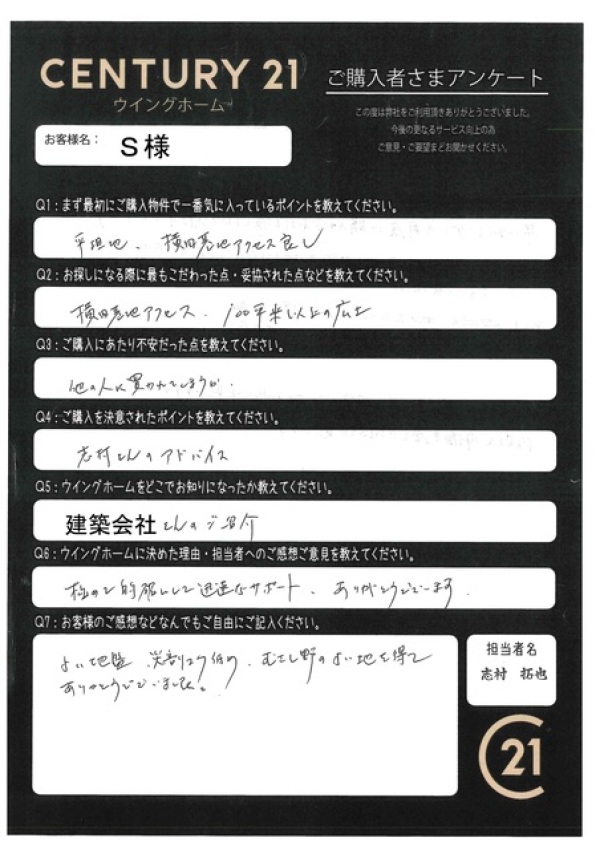 CENTURY 21
ウイングホーム
ご購入者さまアンケート
この度は弊社をご利用頂きありがとうございました。
今後の更なるサービス向上の為
ご意見・ご要望まどお聞かせください。
お客様名: S様
Q1:まず最初にご購入物件で一番気に入っているポイントを教えてください。
平坦地、横田基地アクセス良し
Q2:お探しになる際に最もこだわった点・妥協された点などを教えてください。
横田基地アクセス、100平米以上の広さ
Q3:ご購入にあたり不安だった点を教えてください。
他の人に買われてしまうか.
Q4:ご購入を決意されたポイントを教えてください。
志村さんのアドバイス
Q5:ウイングホームをどこでお知りになったか教えてください。
建築会社さんのご紹介
Q6:ウイングホームに決めた理由・担当者へのご感想ご意見を教えてください。
極めて的確にして迅速なサポート、ありがとうございます.
Q7:お客様のご感想などなんでもご自由にご記入ください。
よい地盤、災害リスク低め、むさし野のよい地を得て
ありがとうございました。
担当者名
志村 拓也
21